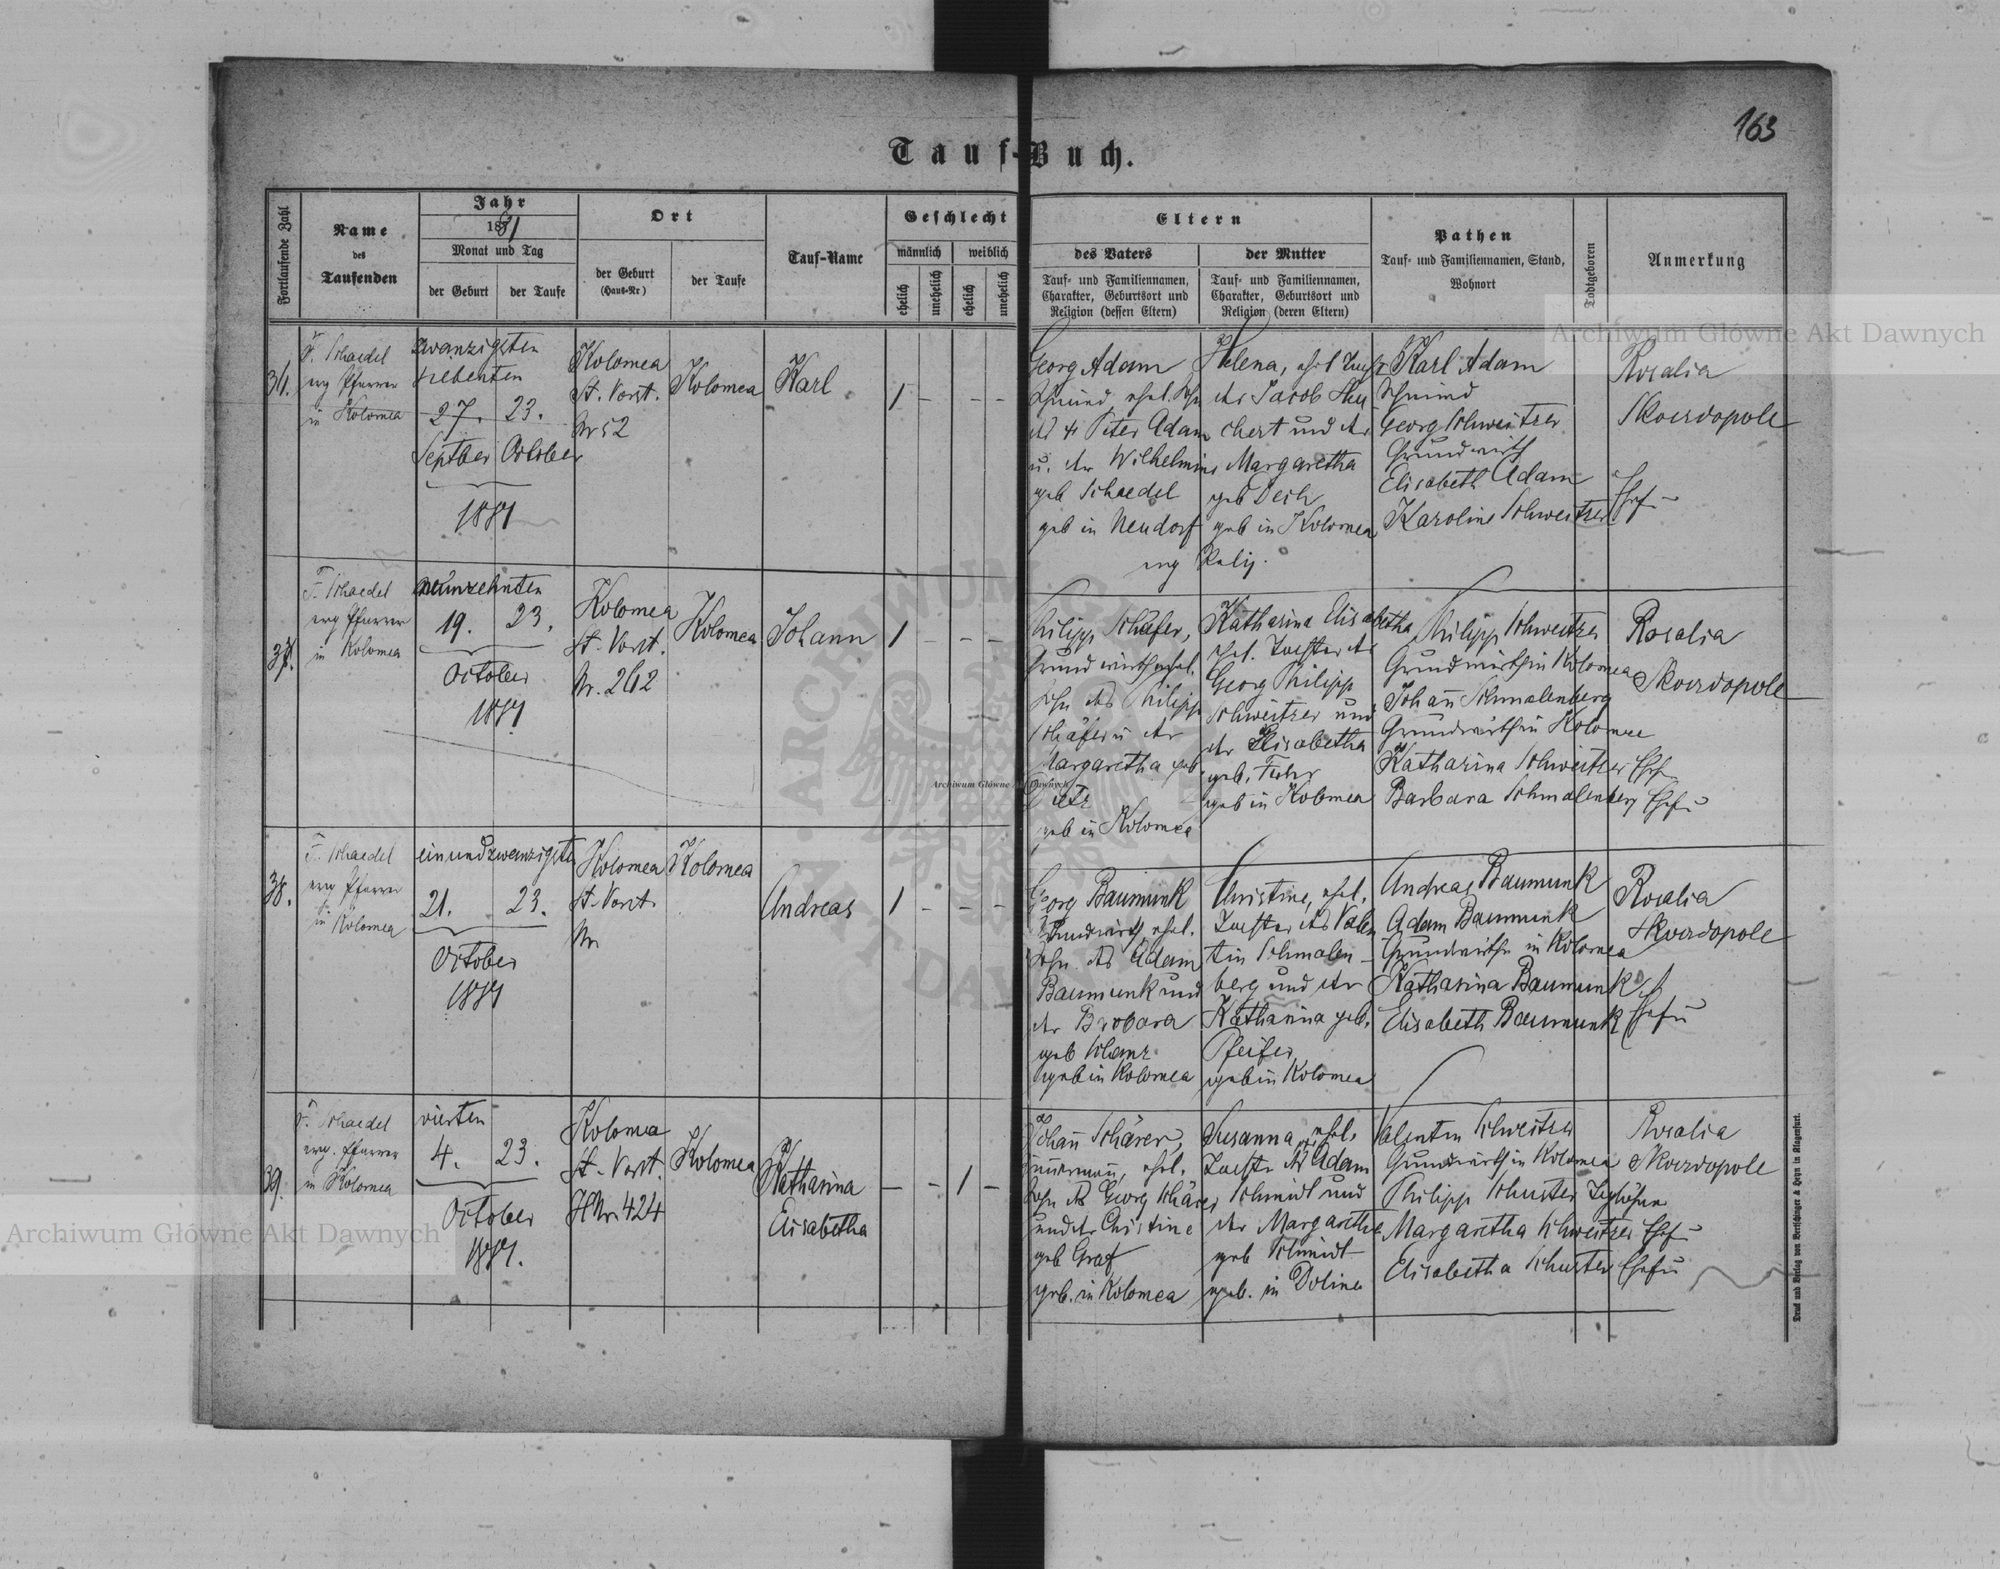 163
Tauf-Buch.
Fortlaufende Zahl
Name
des
Taufenden
Jahr
1881
Monat und Tag
der Geburt
der Taufe
Ort
der Geburt
(Haus-Nr.)
der Taufe
Tauf-Name
Geschlecht
männlich
weiblich
ehelich
unehelich
ehelich
unehelich
Eltern
des Vaters
Tauf- und Familiennamen,
Charakter, Geburtsort und
Religion (dessen Eltern)
der Mutter
Tauf- und Familiennamen,
Charakter, Geburtsort und
Religion (deren Eltern)
Pathen
Tauf- und Familiennamen, Stand,
Wohnort
Todtgeboren
Anmerkung
36.
F. Schaedel
evg Pfarrer
in Kolomea
zwanzigsten
siebenten
27. 23.
Septber October
1881
Kolomea
St. Vorst.
Nr 52
Kolomea
Karl
1 - - -
Georg Adam
Schmied ehel. Sohn
des + Peter Adam
u. der Wilhelmine
geb Schaedel
geb in Neudorf
Helena, ehel Tocht
des Jacob
chert und der
Margaretha
geb Desch
geb in Kolomea
evg Relig.
Karl Adam
Schmied
Georg Schweitzer
Grundwirth
Elisabeth Adam
Karoline Schweitzer
Ehefr
Rosalia
Skoerdopole
37.
F. Schaedel
evg Pfarrer
in Kolomea
neunzehnten
19. 23.
October
1881
Kolomea
St. Vorst.
Nr. 262
Kolomea
Johann
1 - - -
Philipp Schäfer,
Grundwirth ehel.
Sohn des Philipp
Schäfer u der
Margaretha geb
geb in Kolomea
Katharina Elisabetha
ehel. Tochter des
Georg Philipp
Schweitzer und
der Elisabetha
geb. Fuhr
geb in Kolomea
Philipp Schweitzer
Grundwirth in Kolomea
Johan̄ Schmalenberg
Grundwirth in Kolomea
Katharina Schweitzer Ehefr
Barbara Schmalenberg Ehefr
Rosalia
Skoerdopole
38.
F. Schaedel
evg Pfarrer
in Kolomea
einundzwanzigsten
21. 23.
October
1881
Kolomea
St. Vorst.
Nr
Kolomea
Andreas
1 - - -
Georg Baumunk
Grundwirth, ehel.
Sohn des Adam
Baumunk und
der Barbara
geb Schanz
geb in Kolomea
Christine, ehel.
Tochter des Valen
tin Schmalen-
berg und der
Katharina geb.
Pfeifer
geb in Kolomea
Andreas Baumunk
Adam Baumunk
Grundwirthe in Kolomea
Katharina Baumunk
Elisabeth Baumunk
Ehefr
Rosalia
Skoerdopole
39.
F. Schaedel
evg. Pfarrer
in Kolomea
vierten
4. 23.
October
1881.
Kolomea
St. Vorst.
HNr. 424
Kolomea
Katharina
Elisabetha
- - 1 -
Johan̄ Schärer,
Zimmerman̄, ehel.
Sohn des Georg Schärer
und der Christine
geb Graf
geb. in Kolomea
Susanna, ehel.
Tochter des Adam
Schmidt und
der Margaretha
geb Schmidt
geb. in Dolina
Valentin Schweitzer
Grundwirth in Kolomea
Philipp Schuster
Margaretha Schweitzer Ehefr
Elisabetha Schuster Ehefr
Rosalia
Skoerdopole
Druck und Verlag von Bertschinger & Heyn in Klagenfurt.
Archiwum Główne Akt Dawnych
Archiwum Główne Akt Dawnych
Archiwum Główne Akt Dawnych